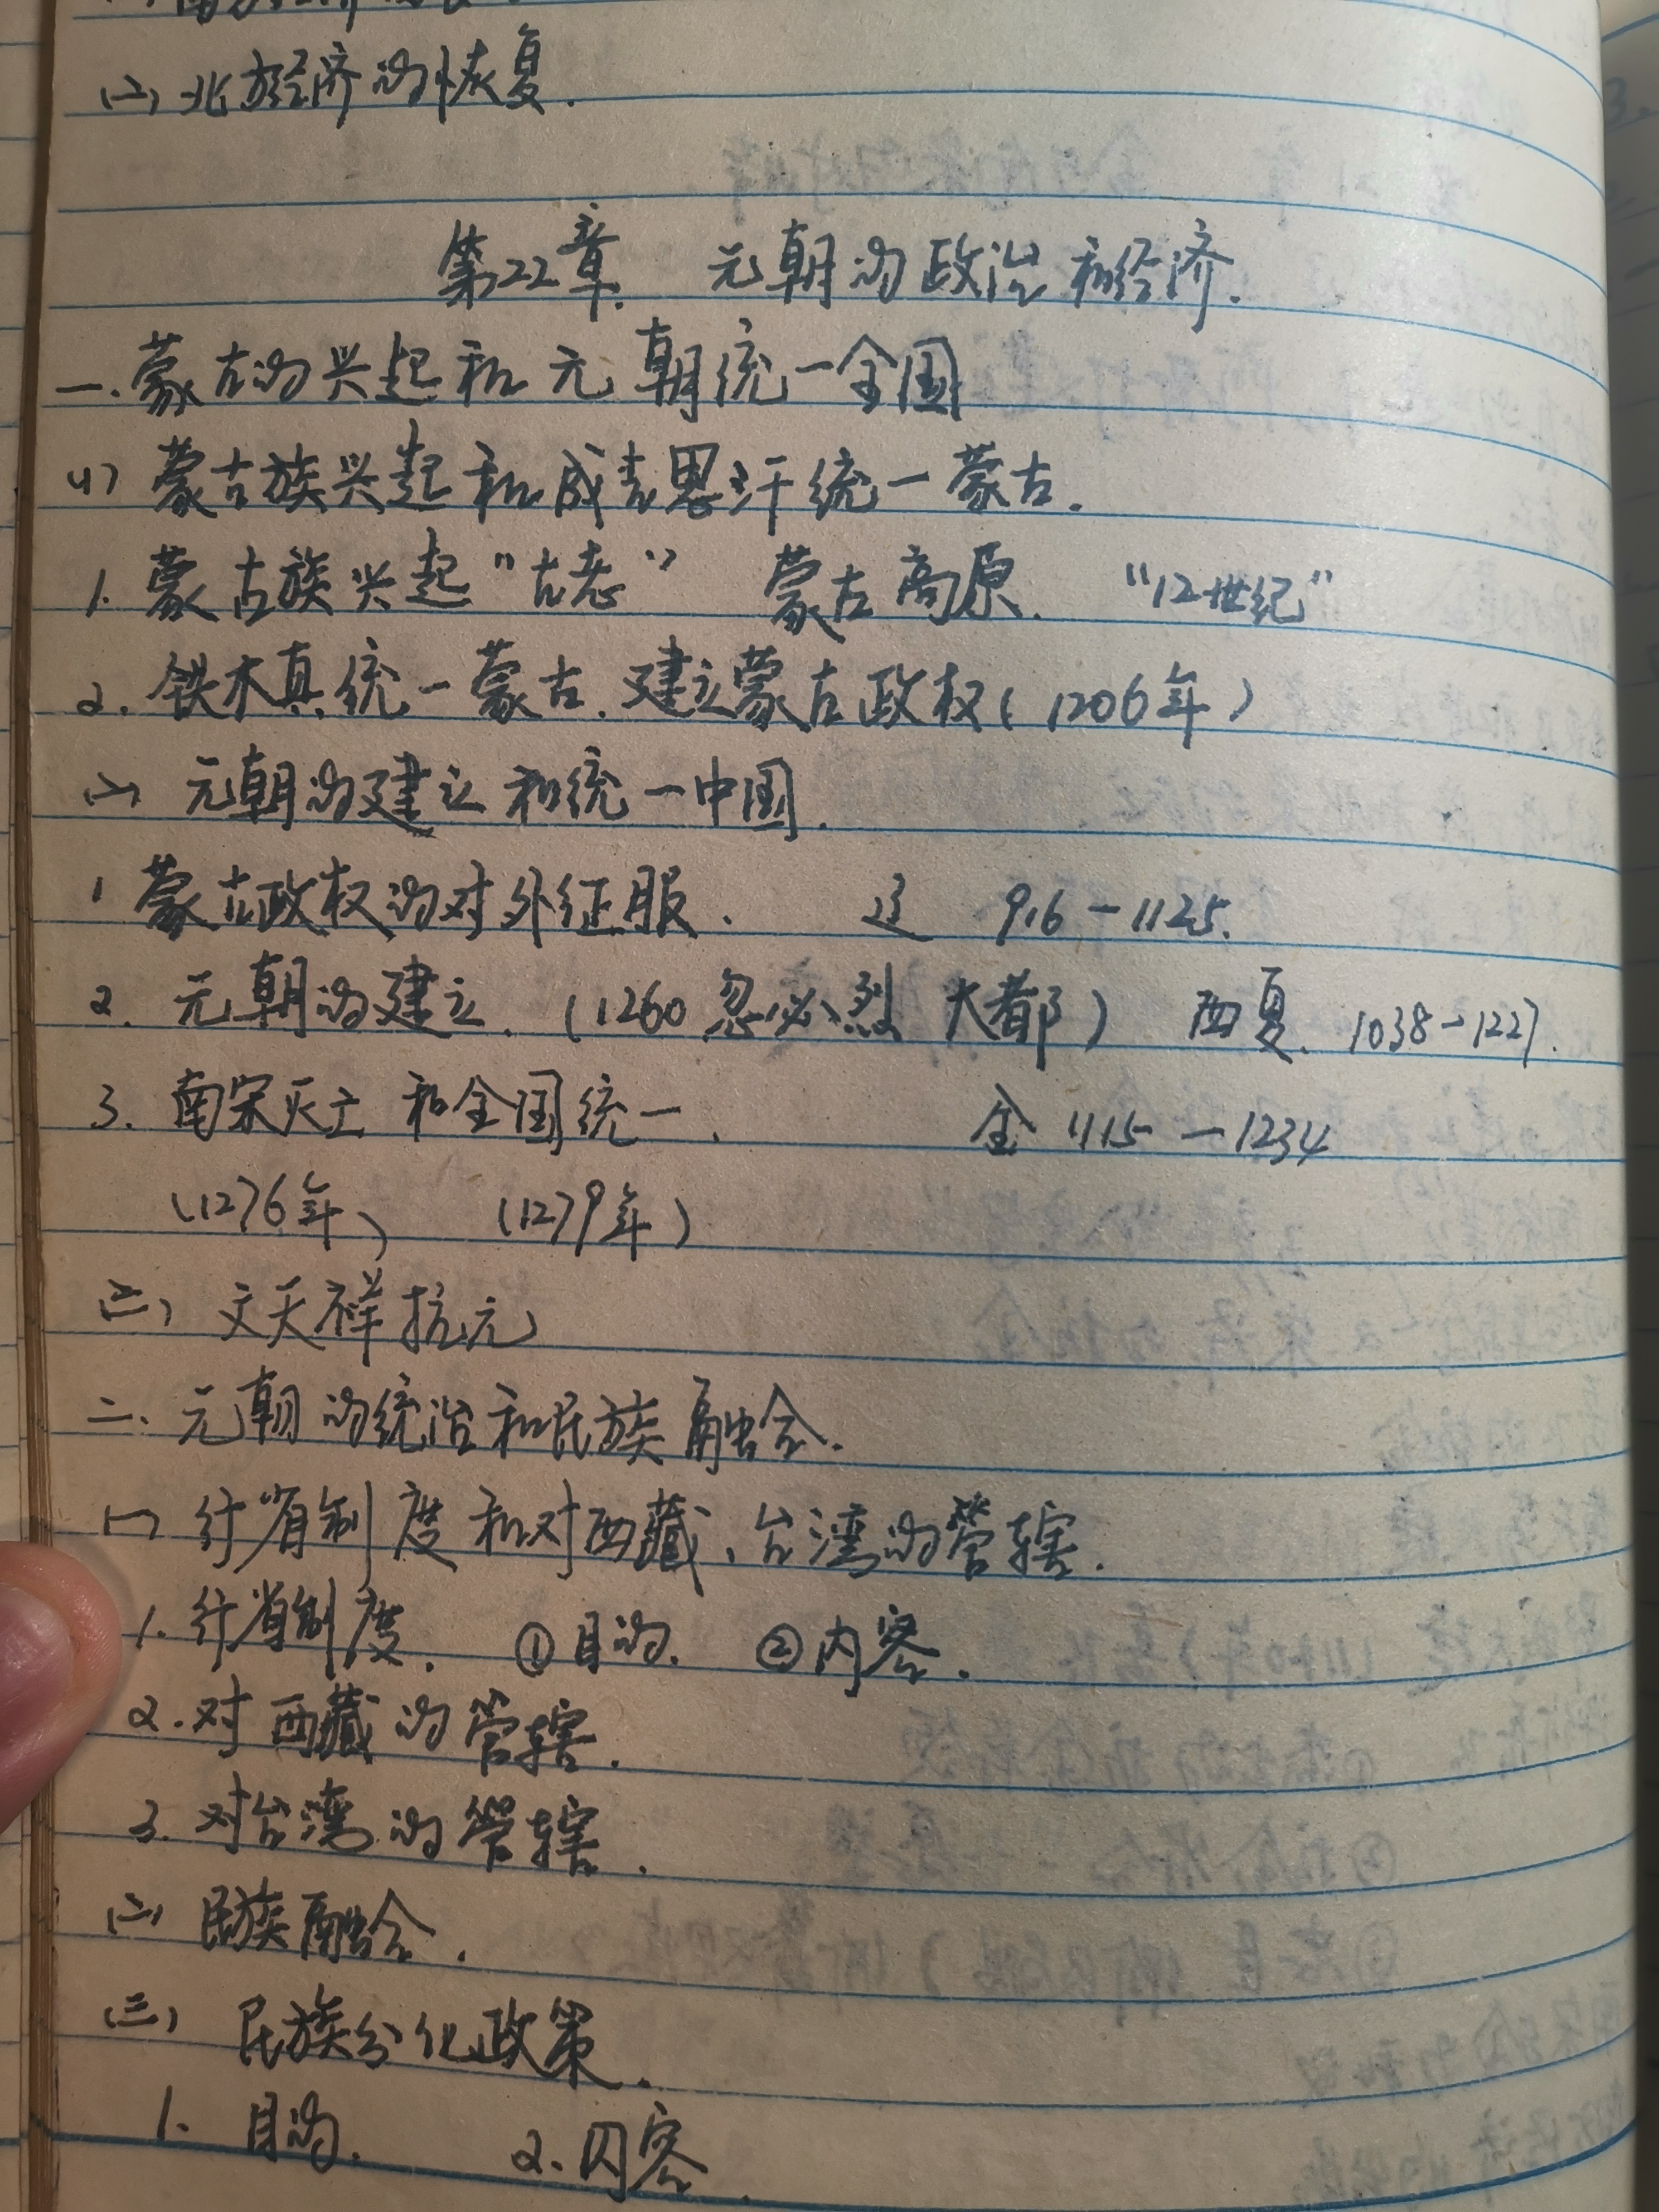 (二) 北方经济的恢复.
第22章. 元朝的政治和经济.
一. 蒙古的兴起和元朝统一全国
(1) 蒙古族兴起和成吉思汗统一蒙古.
1. 蒙古族兴起 "古老" 蒙古高原. "12世纪"
2. 铁木真统一蒙古. 建立蒙古政权 (1206年)
(二) 元朝的建立和统一中国.
1 蒙古政权的对外征服. 辽 916-1125.
2. 元朝的建立. (1260 忽必烈 大都) 西夏. 1038-1227.
3. 南宋灭亡和全国统一. 金 1115-1234
(1276年) (1279年)
(三) 文天祥抗元
二. 元朝的统治和民族融合.
(一) 行省制度和对西藏、台湾的管辖.
1. 行省制度. ①目的. ②内容.
2. 对西藏的管辖.
3. 对台湾的管辖.
(二) 民族融合.
(三) 民族分化政策.
1. 目的. 2. 内容.